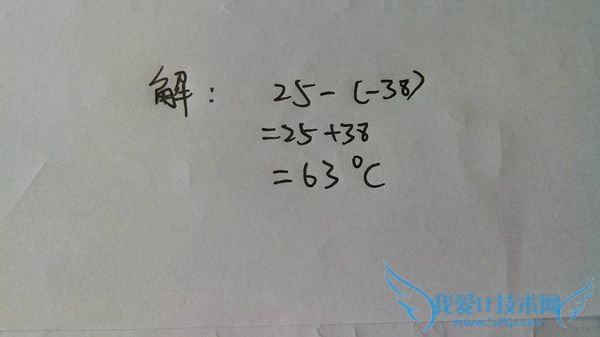 解： 25-(-38)
=25+38
=63°C
我爱IT技术网